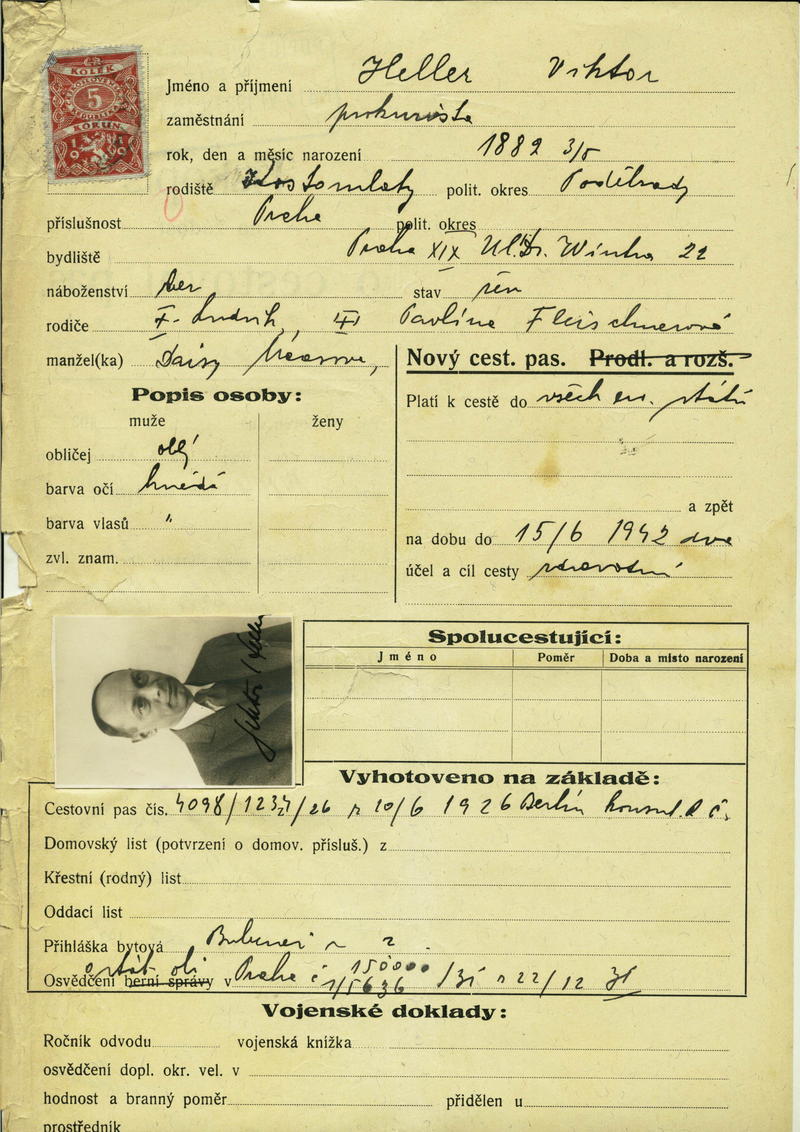 KOLEK
5
KORUN
Jméno a příjmení Heller Viktor
zaměstnání prokurista
rok, den a měsíc narození 1889 3/5
rodiště Kostomlaty polit. okres Poděbrady
příslušnost Praha polit. okres
bydliště Praha XIX Ul. Dr. Wintra 22
náboženství stav žen
rodiče F. Ludvik, Pavlína Fleischnerová
manžel(ka) Daisy
Nový cest. pas. Prodl. a rozš.
Popis osoby:
muže ženy
Platí k cestě do všech ev. států
obličej olej
barva očí hnědá
barva vlasů "
zvl. znam.
a zpět
na dobu do 15/6 1942 dva
účel a cíl cesty zdravotní
Viktor Heller
Spolucestující:
Jméno Poměr Doba a místo narození
Vyhotoveno na základě:
Cestovní pas čís. 4098/1234/26 z 10/6 1926 Berlín konsul. R Č.
Domovský list (potvrzení o domov. přísluš.) z
Křestní (rodný) list
Oddací list
Přihláška bytová Bubeneč
Osvědčení berní správy v Praha č 150000 1/5636 /31 z 22/12 31
Vojenské doklady:
Ročník odvodu vojenská knížka
osvědčení dopl. okr. vel. v
hodnost a branný poměr přidělen u
prostředník